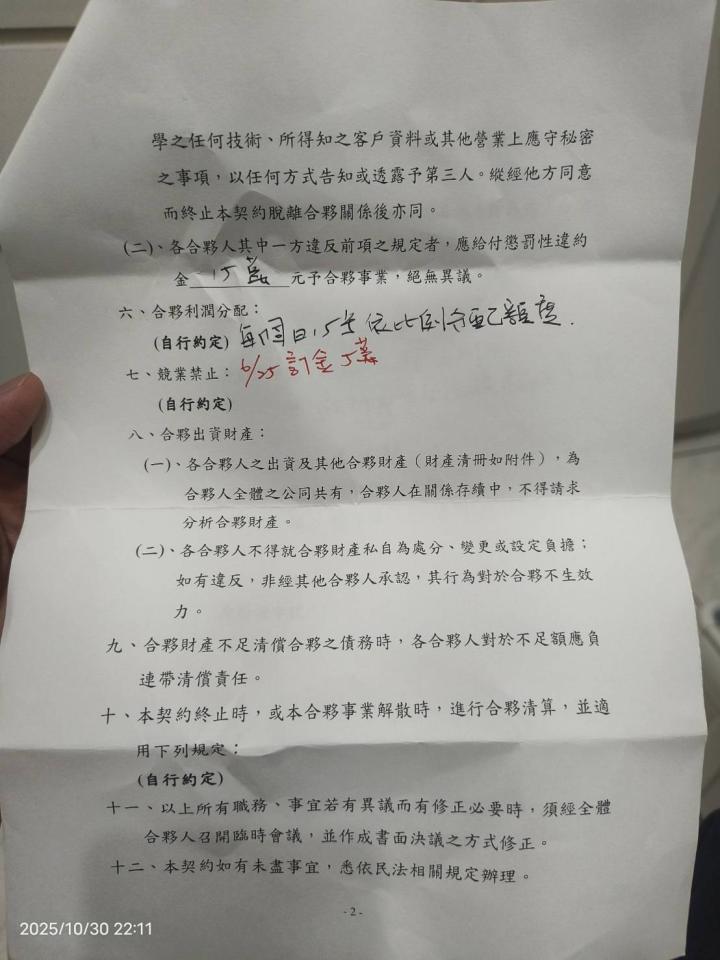 學之任何技術、所得知之客戶資料或其他營業上應守秘密
之事項，以任何方式告知或透露予第三人。縱經他方同意
而終止本契約脫離合夥關係後亦同。
(二)、各合夥人其中一方違反前項之規定者，應給付懲罰性違約
金 15萬 元予合夥事業，絕無異議。
六、合夥利潤分配：
(自行約定) 每個月15號依比例分配額度.
七、競業禁止： 6/25 訂金5萬
(自行約定)
八、合夥出資財產：
(一)、各合夥人之出資及其他合夥財產（財產清冊如附件），為
合夥人全體之公同共有，合夥人在關係存續中，不得請求
分析合夥財產。
(二)、各合夥人不得就合夥財產私自為處分、變更或設定負擔；
如有違反，非經其他合夥人承認，其行為對於合夥不生效
力。
九、合夥財產不足清償合夥之債務時，各合夥人對於不足額應負
連帶清償責任。
十、本契約終止時，或本合夥事業解散時，進行合夥清算，並適
用下列規定：
(自行約定)
十一、以上所有職務、事宜若有異議而有修正必要時，須經全體
合夥人召開臨時會議，並作成書面決議之方式修正。
十二、本契約如有未盡事宜，悉依民法相關規定辦理。
- 2 -
2025/10/30 22:11